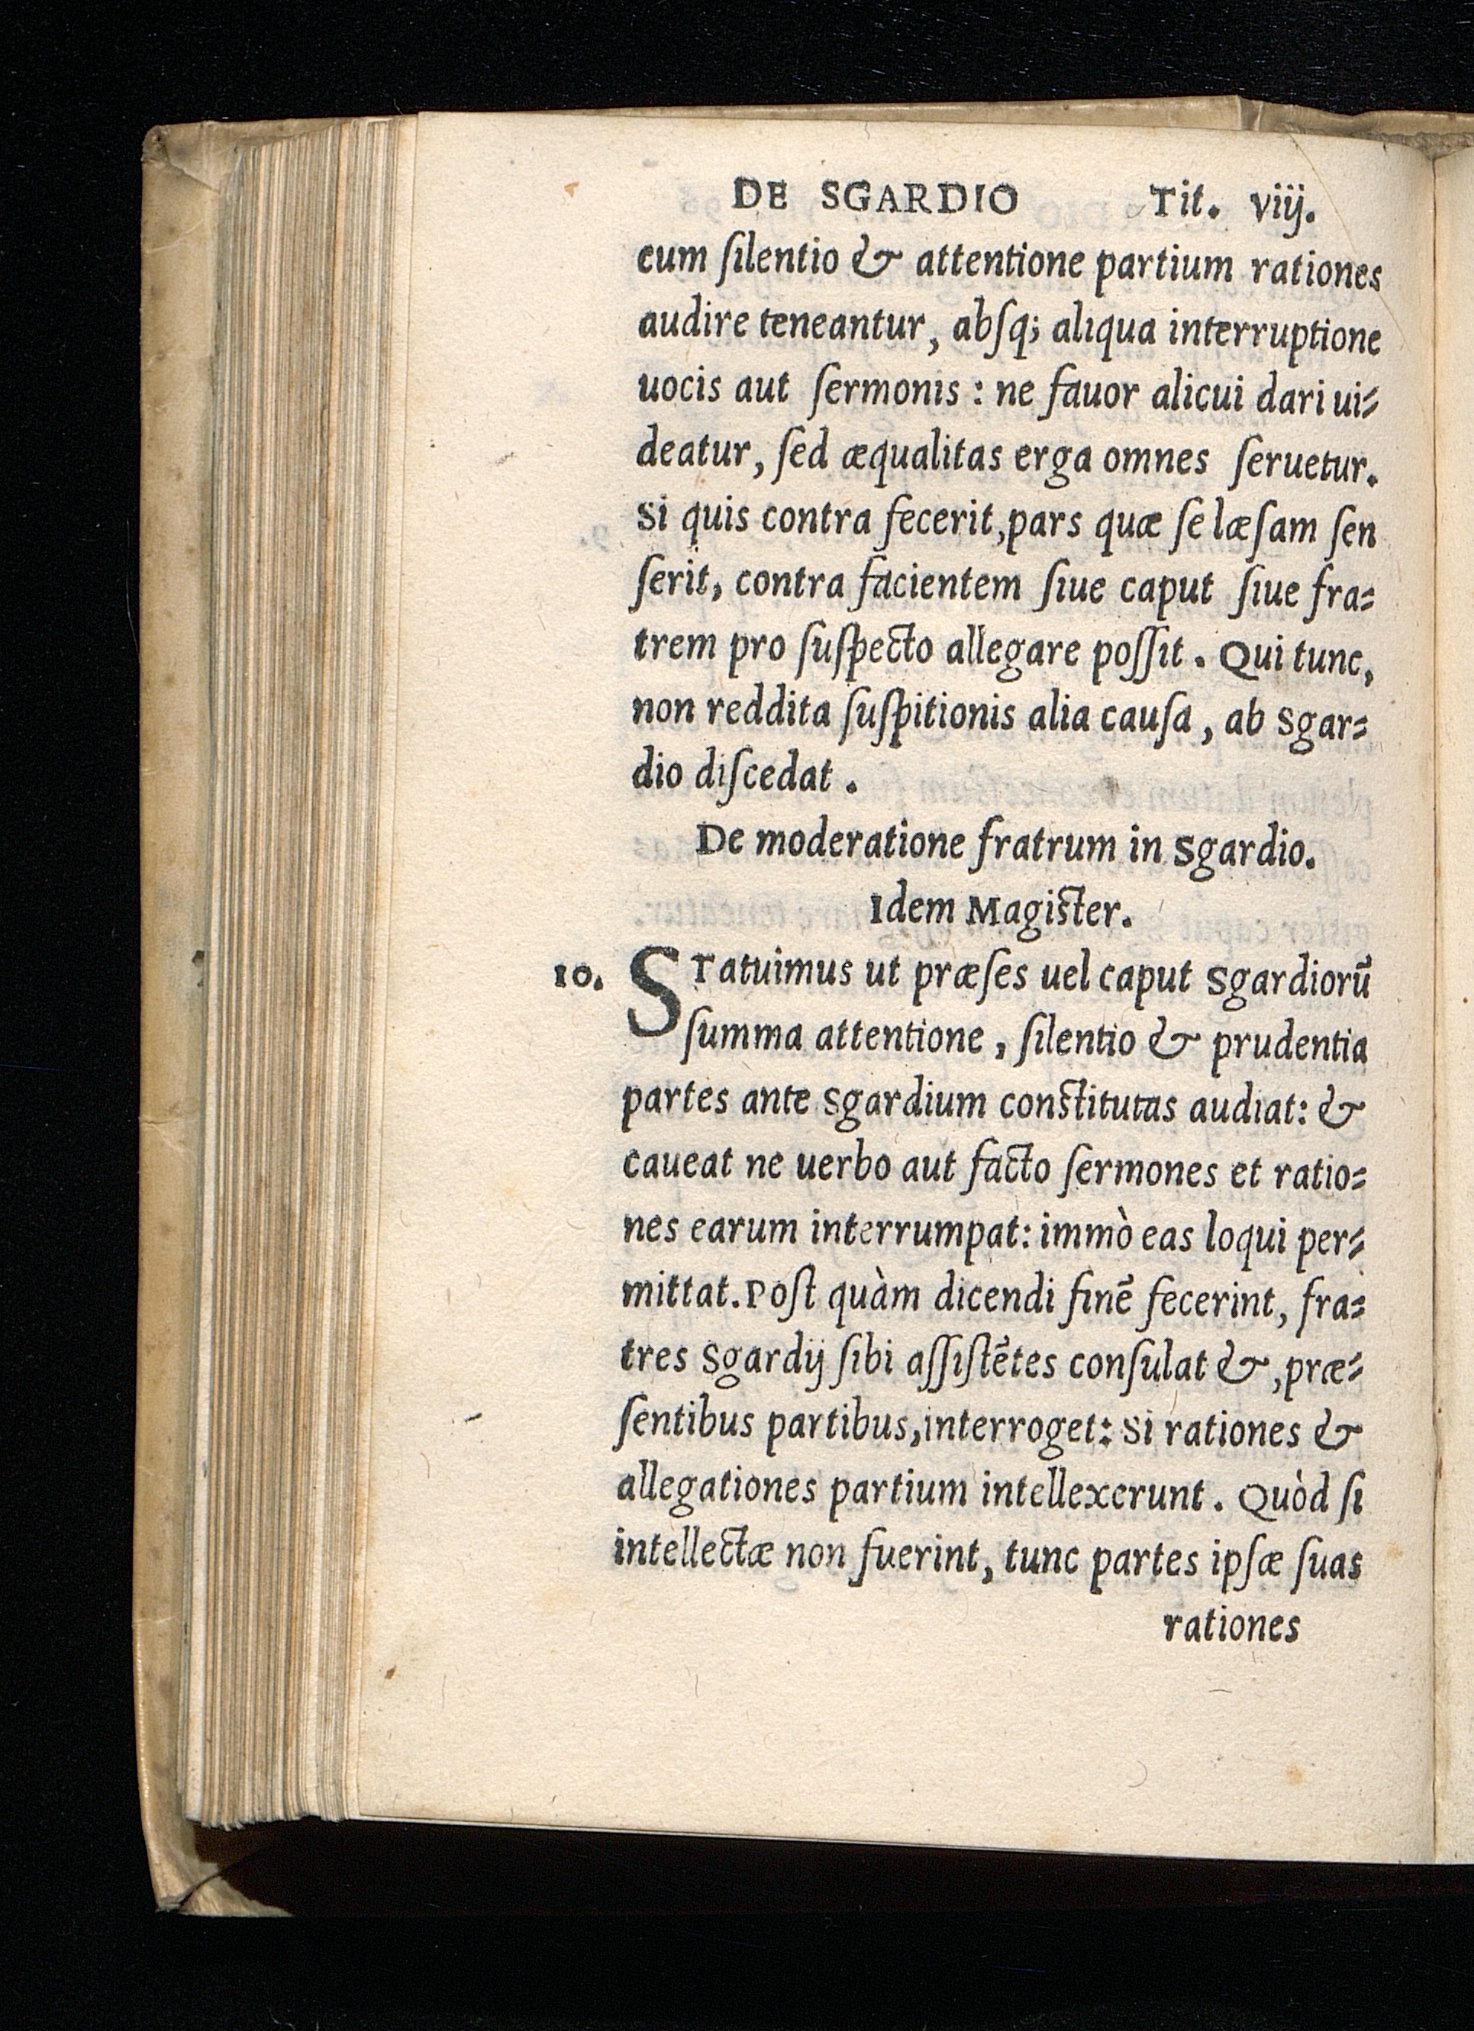 DE SGARDIO Tit. viij.
cum ſilentio & attentione partium rationes
audire teneantur, abſq; aliqua interruptione
uocis aut ſermonis : ne fauor alicui dari ui-
deatur, ſed æqualitas erga omnes ſeruetur.
Si quis contra fecerit, pars quæ ſe læſam ſen
ſerit, contra facientem ſiue caput ſiue fra-
trem pro ſuſpecto allegare poſſit. Qui tunc,
non reddita ſuſpitionis alia cauſa, ab Sgar-
dio diſcedat.
De moderatione fratrum in Sgardio.
Idem Magiſter.
10. STatuimus ut præſes uel caput Sgardiorū
ſumma attentione, ſilentio & prudentia
partes ante Sgardium conſtitutas audiat: &
caueat ne uerbo aut facto ſermones et ratio-
nes earum interrumpat: immò eas loqui per-
mittat. Poſt quàm dicendi finē fecerint, fra-
tres Sgardij ſibi aſſiſtētes conſulat &, præ-
ſentibus partibus, interroget: Si rationes &
allegationes partium intellexerunt. Quòd ſi
intellectæ non fuerint, tunc partes ipſæ ſuas
rationes